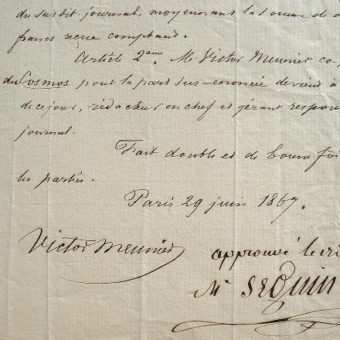 du susdit journal, moyennant la somme de d
francs verse comptant.
Article 2ème. M. Victor Meunier co-
du Cosmos pour la part sus-énoncée devient à
de ce jour, rédacteur en chef et gérant respon
journal.
Fait double et de bonne foi
les parties.
Paris 29 juin 1867.
Victor Meunier
approuvé l'écri
Mr Seguin